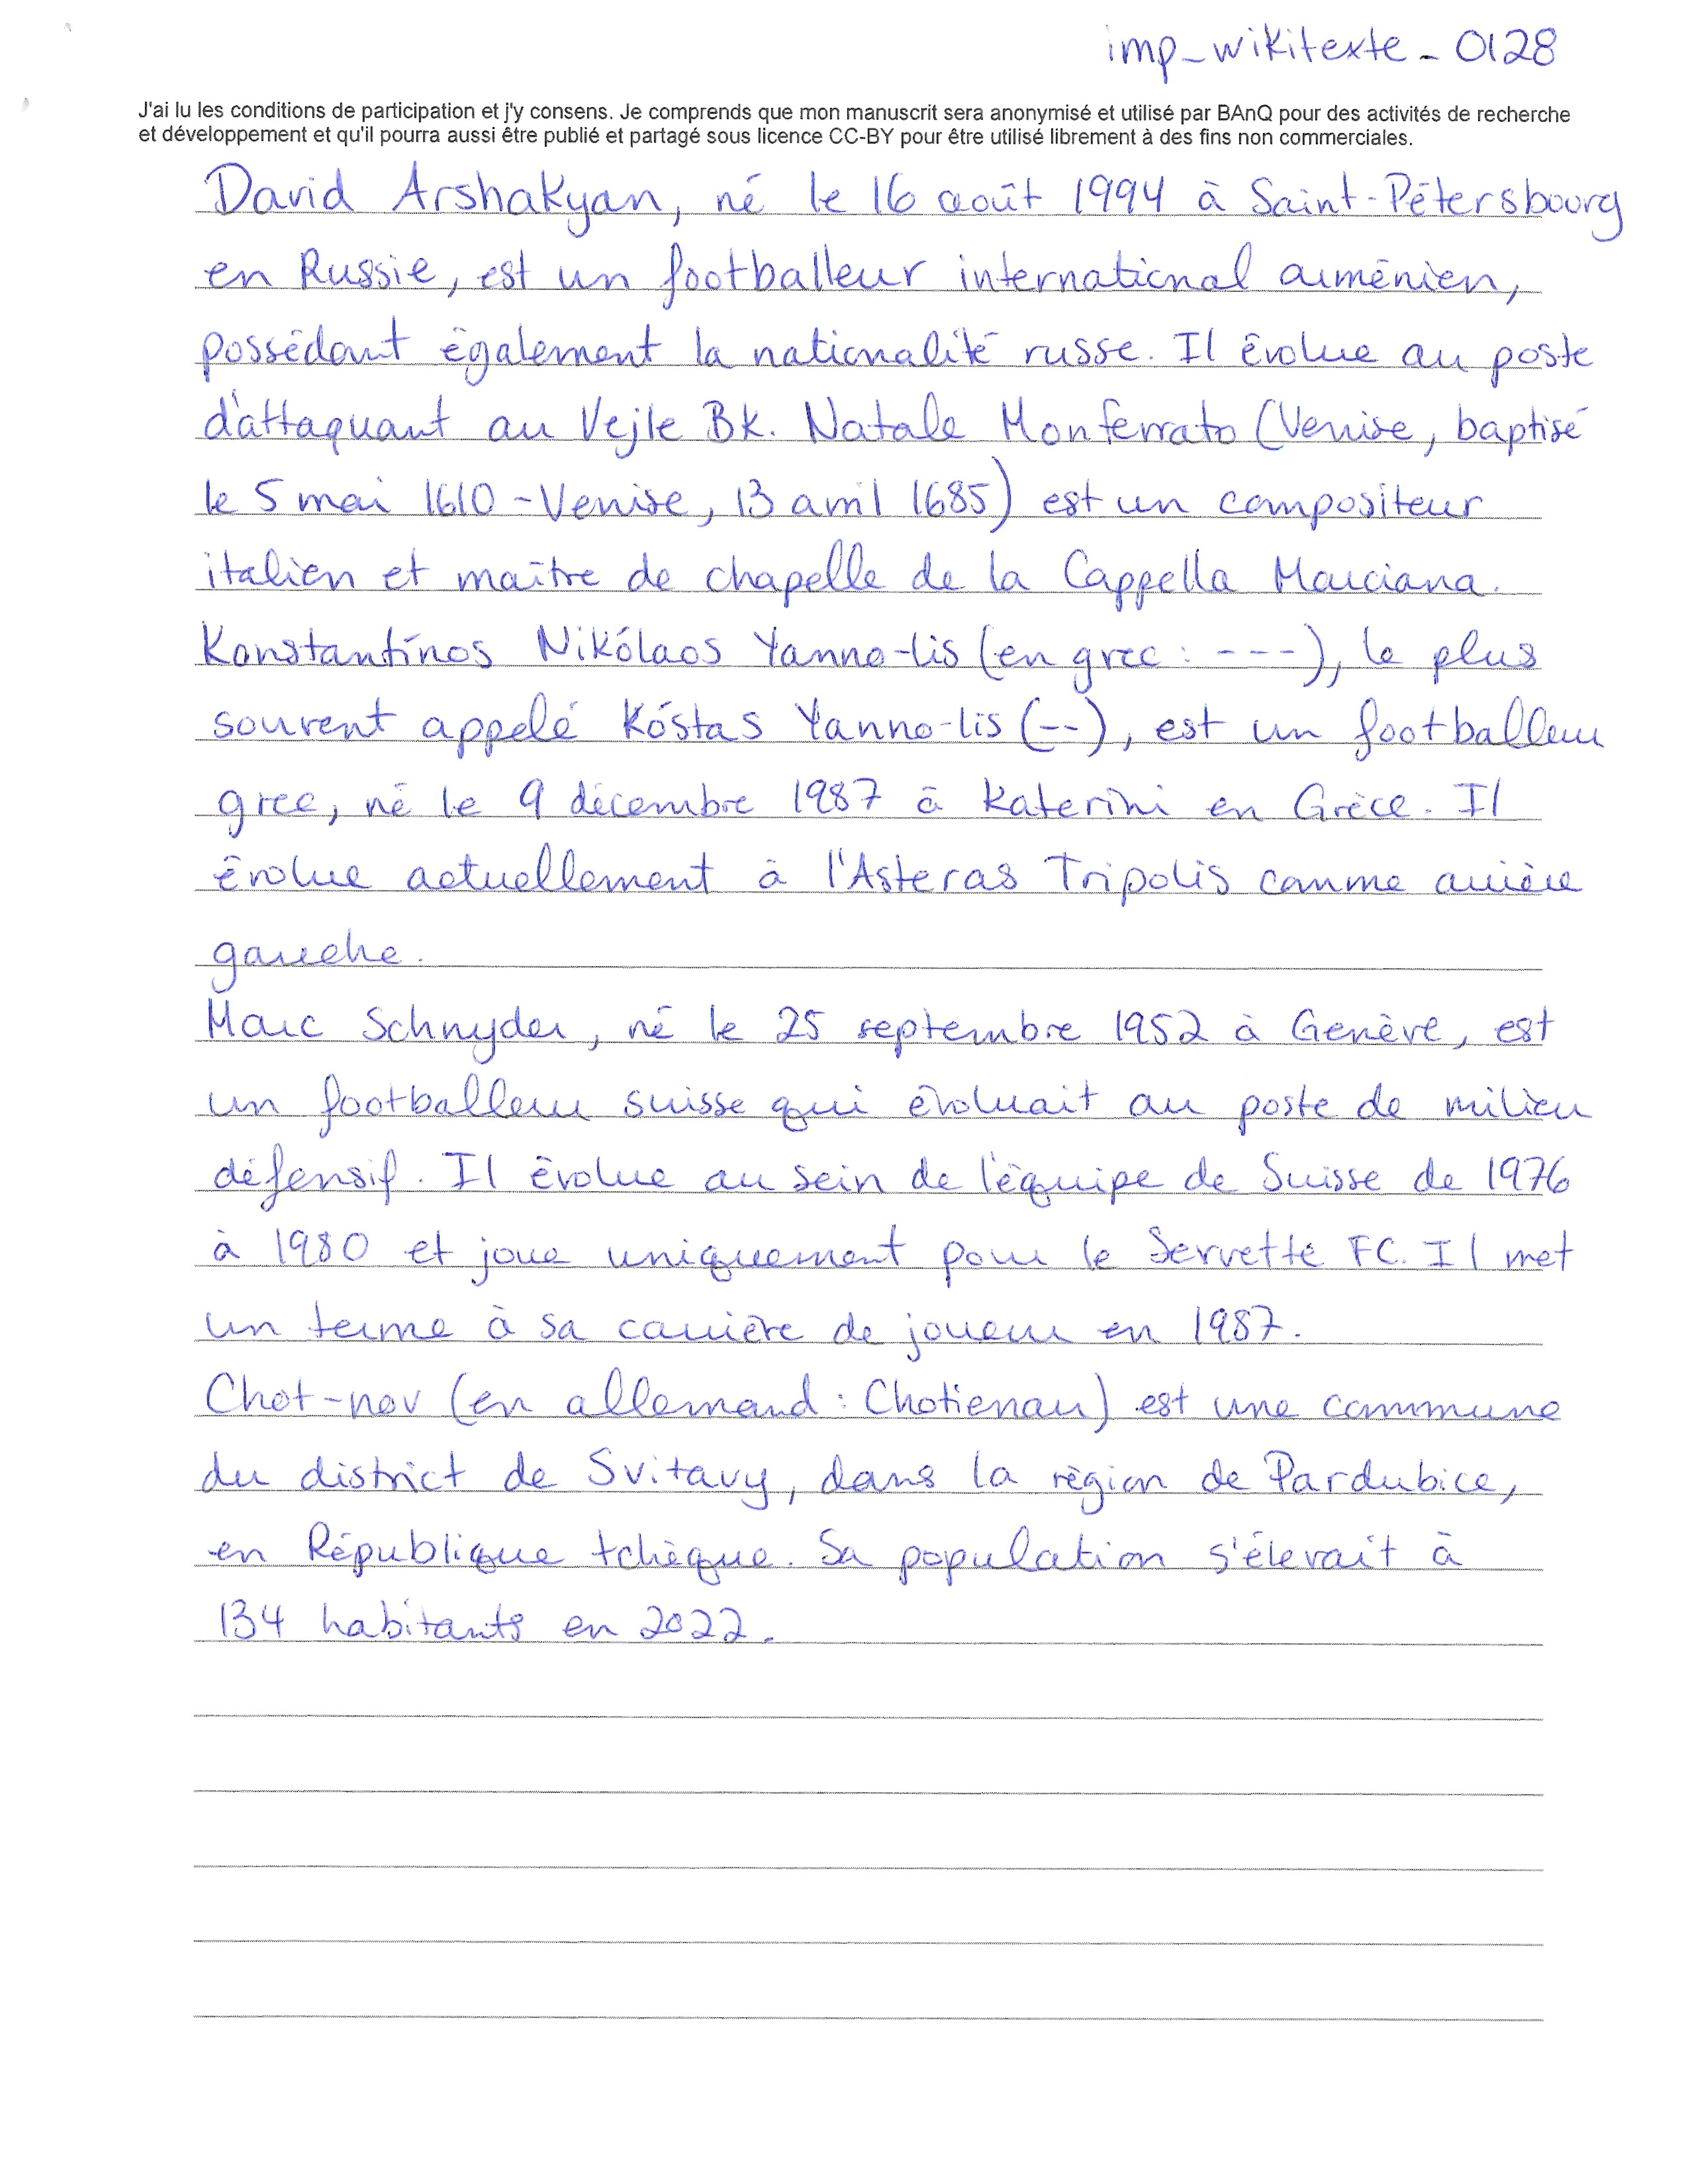 imp_wikitexte_0128
J'ai lu les conditions de participation et j'y consens. Je comprends que mon manuscrit sera anonymisé et utilisé par BAnQ pour des activités de recherche
et développement et qu'il pourra aussi être publié et partagé sous licence CC-BY pour être utilisé librement à des fins non commerciales.
David Arshakyan, né le 16 août 1994 à Saint-Pétersbourg
en Russie, est un footballeur international arménien,
possédant également la nationalité russe. Il évolue au poste
d'attaquant au Vejle BK. Natale Monferrato (Venise, baptisé
le 5 mai 1610 - Venise, 13 avril 1685) est un compositeur
italien et maître de chapelle de la Cappella Marciana.
Konstantínos Nikólaos Yanno-lis (en grec : ---), le plus
souvent appelé Kóstas Yanno-lis (--), est un footballeur
grec, né le 9 décembre 1987 à Katerini en Grèce. Il
évolue actuellement à l'Asteras Tripolis comme arrière
gauche.
Marc Schnyder, né le 25 septembre 1952 à Genève, est
un footballeur suisse qui évoluait au poste de milieu
défensif. Il évolue au sein de l'équipe de Suisse de 1976
à 1980 et joue uniquement pour le Servette FC. Il met
un terme à sa carrière de joueur en 1987.
Chot-nov (en allemand : Chotienau) est une commune
du district de Svitavy, dans la région de Pardubice,
en République tchèque. Sa population s'élevait à
134 habitants en 2022.